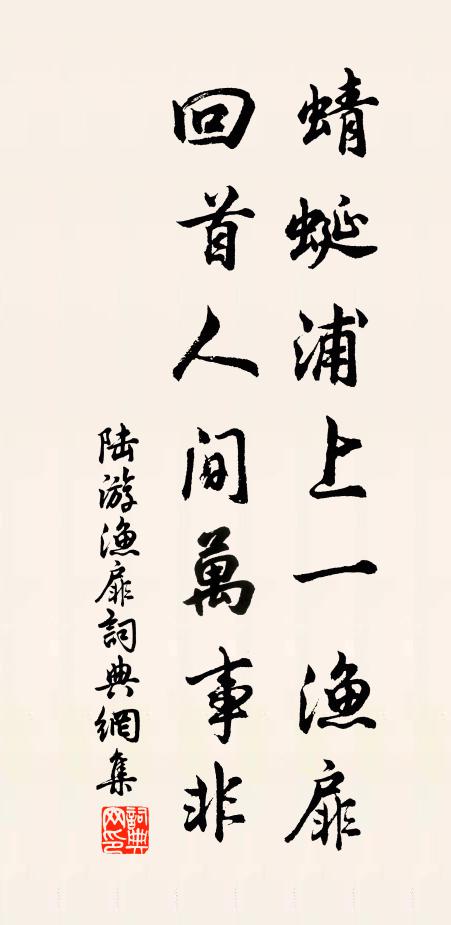 蜻蜓浦上一漁扉
回首人間萬事非
陸游漁扉詞典網集
詞典
网印